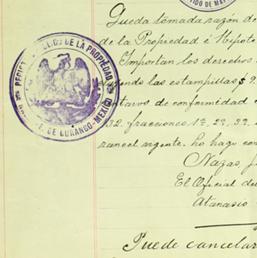 Queda tomada razón de
de la Propiedad é Hipote
Importan los derechos
yendo las estampillas $ 9.
ntavos de conformidad
32. fracciones 1ª. 2ª. 3ª.
rancel vigente, ho hago con
Nazas, J
El Oficial de
Atanasio
Puede cancelar
DE LA PROPIEDAD
DE DURANGO-MEXICO